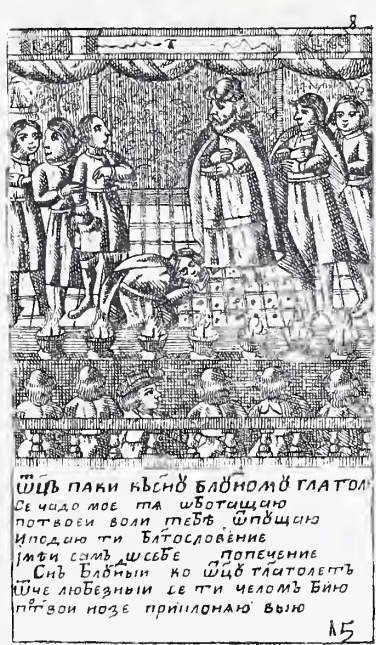 8
ѾЦЪ ПАКИ КЪ СНꙊ БЛꙊНОМꙊ ГЛАГОЛ
СЕ ЧАДО МОЕ ТЯ ѠБОГАЩАЮ
ПО ТВОЕИ ВОЛИ ТЕБѢ ѾПꙊЩАЮ
И ПОДАЮ ТИ БЛГОСЛОВЕНИЕ
ІМѢИ САМЪ Ѡ СЕБЕ ПОПЕЧЕНИЕ
СНЪ БЛꙊНЫИ КО ѾЦꙊ ГЛАГОЛЕТЪ
ѾЧЕ ЛЮБЕЗНЫИ СЕ ТИ ЧЕЛОМЪ БИЮ
ПѺ ТВОИ НОЗЕ ПРИКЛОНЯЮ ВЫЮ